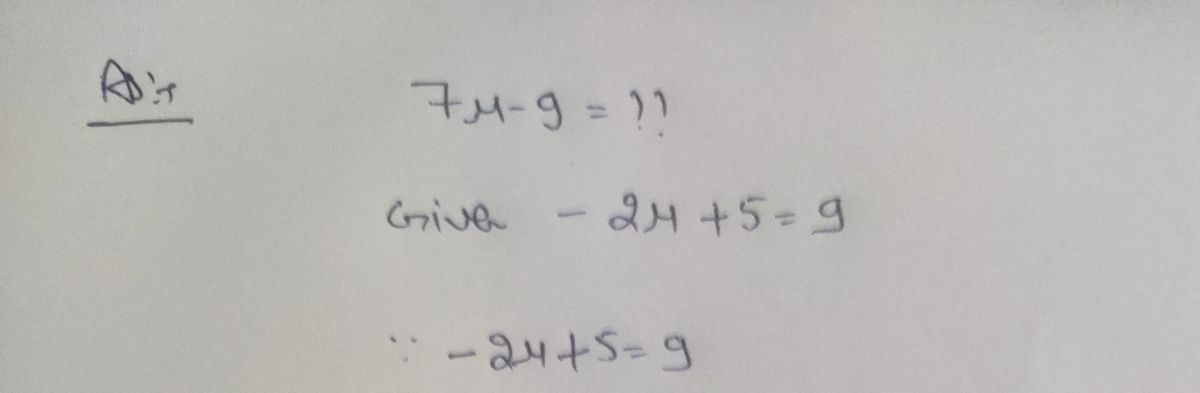 7x-9 = ??
Given - 2x +5 = 9
∵ -2x+5=9